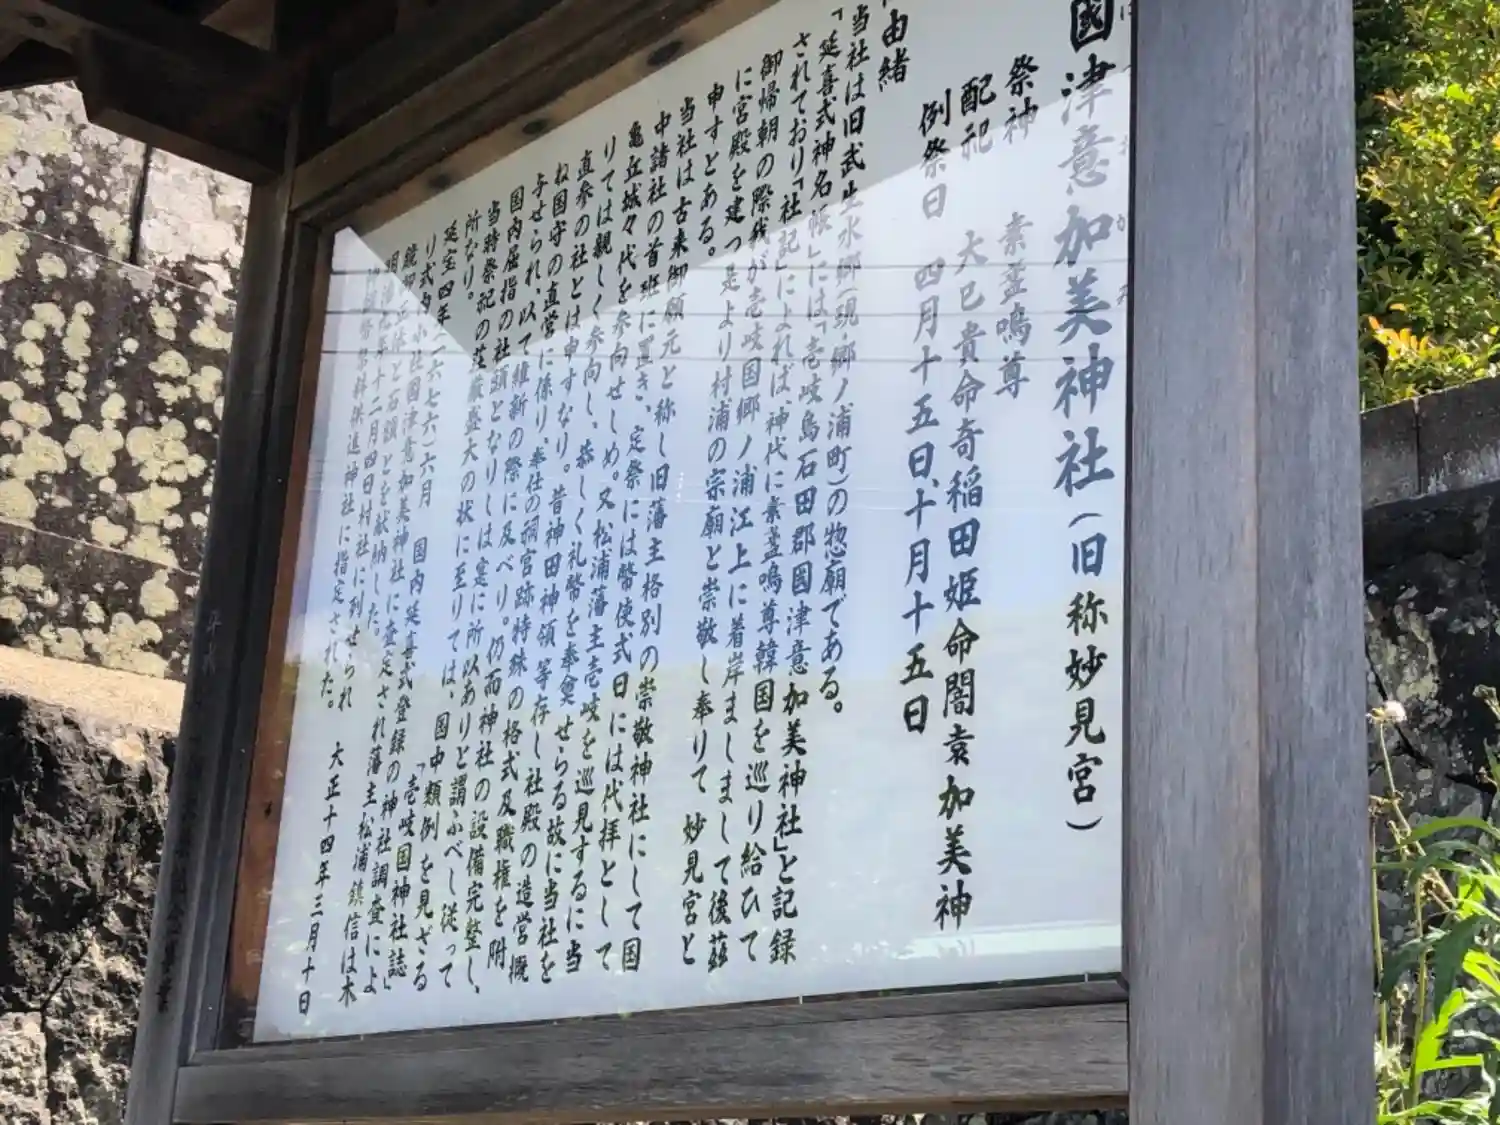 國津意加美神社(旧称妙見宮)
祭神 素盞嗚尊
配祀 大已貴命奇稲田姫命闇袁加美神
例祭日 四月十五日、十月十五日
由緒
当社は旧武生水郷(現・郷ノ浦町)の惣廟である。
「延喜式神名帳」には「壱岐島石田郡國津意加美神社」と記録
されており「社記」によれば、神代に素盞嗚尊韓国を巡り給ひて
御帰朝の際我が壱岐国郷ノ浦江上に着岸ましまして後茲
に宮殿を建つ是より村浦の宗廟と崇敬し奉りて 妙見宮と
申すとある。
当社は古来御願元と称し旧藩主格別の崇敬神社にして国
中諸社の首班に置き、定祭には幣使式日には代拝として
亀丘城々代を参向せしめ。又松浦藩主壱岐を巡見するに当
りては親しく参向し、恭しく礼幣を奉奠せらる故に当社を
直参の社とは申すなり。昔神田神領等存し社殿の造営概
ね国守の直営に係り、奉仕の祠宮跡特殊の格式及職権を附
与せられ、以て維新の際に及べり。仍而神社の設備完整し、
国内屈指の社頭となりしは寔に所以ありと謂ふべし従って
当時祭祀の荘厳盛大の状に至りては、国中類例を見ざる
所なり。 「壱岐国神社誌」
延宝四年(一六七六)六月 国内延喜式登録の神社調査によ
り式内小社国津意加美神社に査定され藩主松浦鎮信は木
鏡 と石額とを献納した。
年十二月四日村社に列せられ
神饌幣帛料供進神社に指定された。 大正十四年三月十日